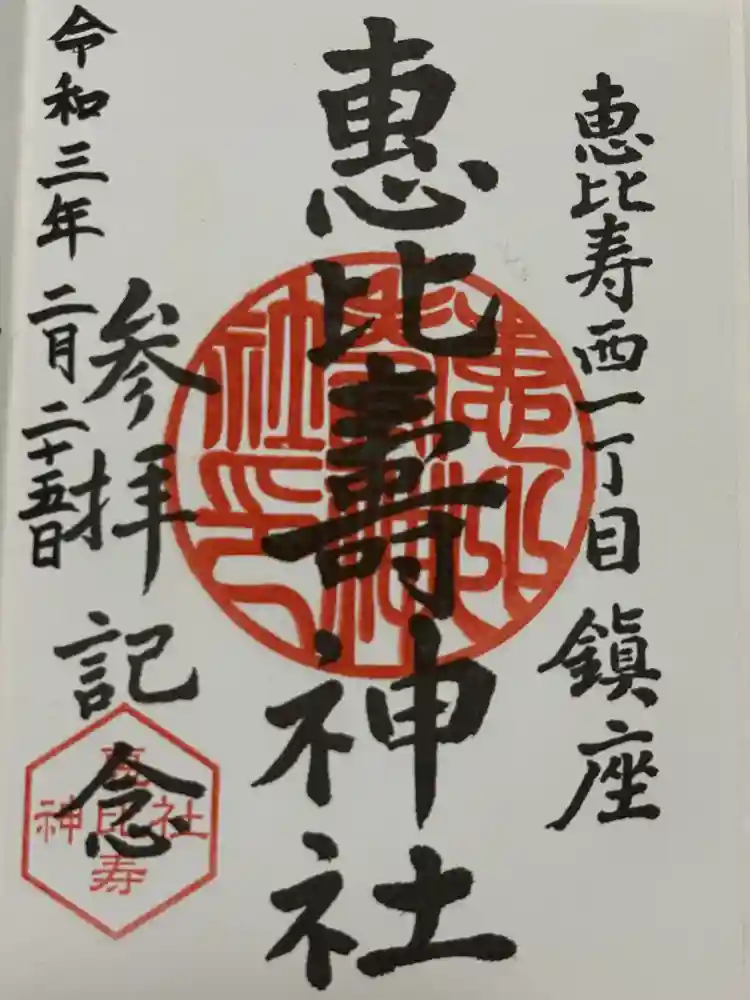 恵比寿西一丁目鎮座
恵比壽神社
参拝記念
令和三年二月二十五日
恵比寿
神社